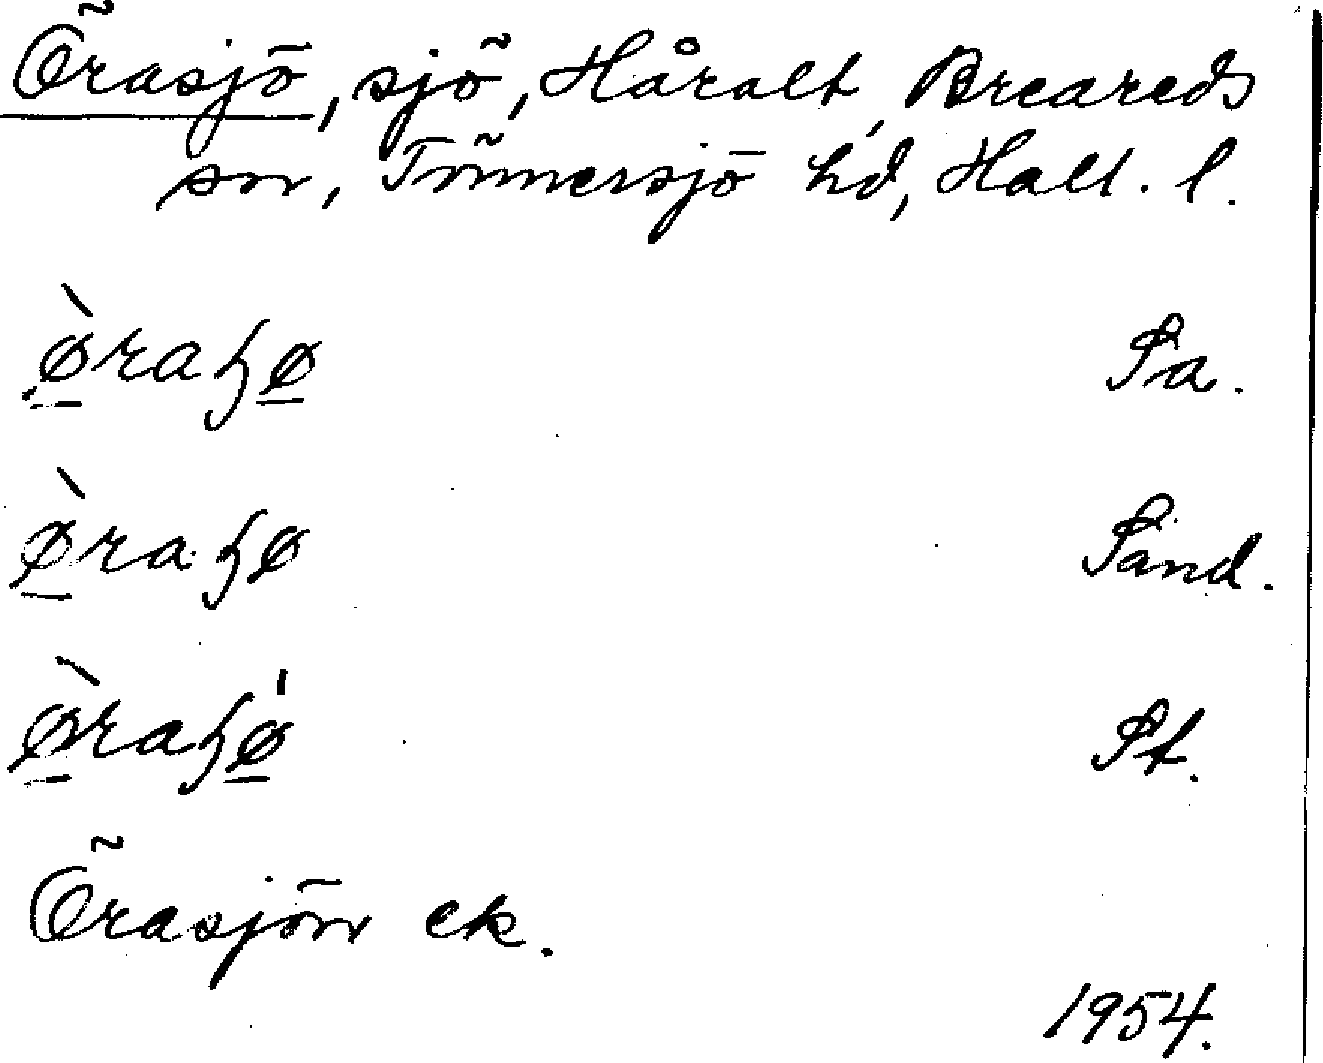 Örasjö, sjö, Håralt, Breareds
sn, Tönnersjö hd, Hall. l.
ø̀raɧø Sa.
ø̀raɧø Sand.
ø̀raɧø̍ St.
Örasjön ek.
1954.